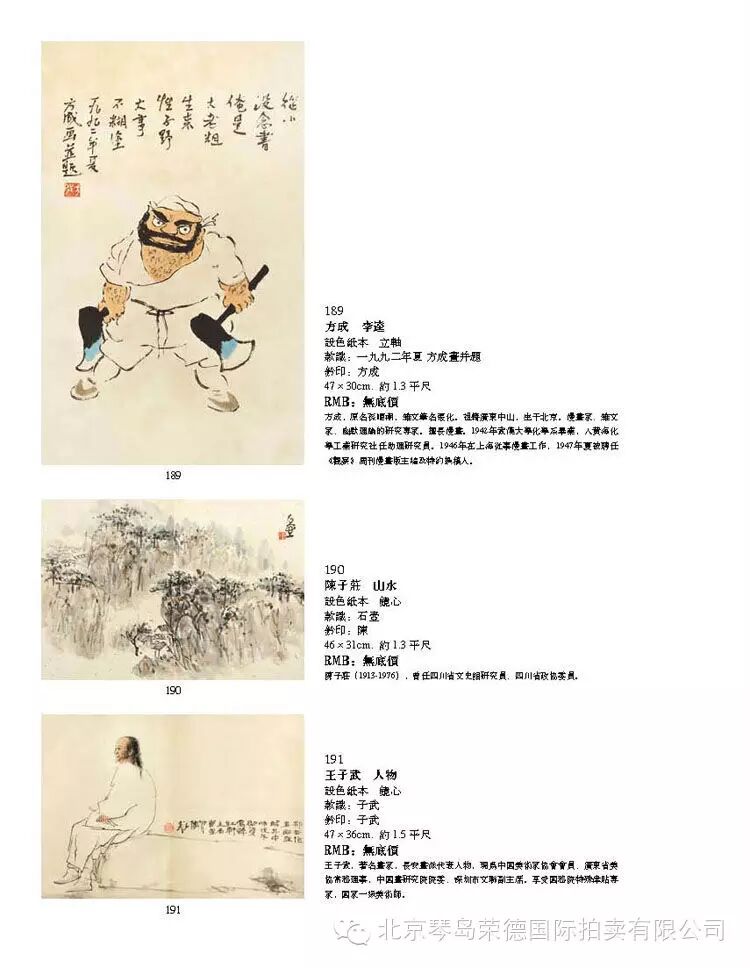 從小
沒念書
俺是
大老粗
生來
性子野
大事
不糊塗
一九九二年夏
方成画並題
189
189
方成 李逵
設色紙本 立軸
款識：一九九二年夏 方成畫并題
鈐印：方成
47×30cm. 約 1.3 平尺
RMB：無底價
方成，原名孫順潮，雜文筆名張化。祖籍廣東中山，生于北京。漫畫家，雜文
家，幽默理論的研究專家。擅長漫畫。1942年武漢大學化學系畢業，入黃海化
學工業研究社任助理研究員。1946年在上海從事漫畫工作，1947年夏被聘任
《觀察》周刊漫畫版主編及特約撰稿人。
190
190
陳子莊 山水
設色紙本 鏡心
款識：石壺
鈐印：陳
46×31cm. 約 1.3 平尺
RMB：無底價
陳子莊（1913-1976），曾任四川省文史館研究員、四川省政協委員。
191
191
王子武 人物
設色紙本 鏡心
款識：子武
鈐印：子武
47×36cm. 約 1.5 平尺
RMB：無底價
王子武，著名畫家，長安畫派代表人物，現爲中国美術家協會會員，廣東省美
協常務理事，中国畫研究院院委，深圳市文聯副主席。享受国務院特殊津貼專
家，国家一級美術師。
北京琴岛荣德国际拍卖有限公司